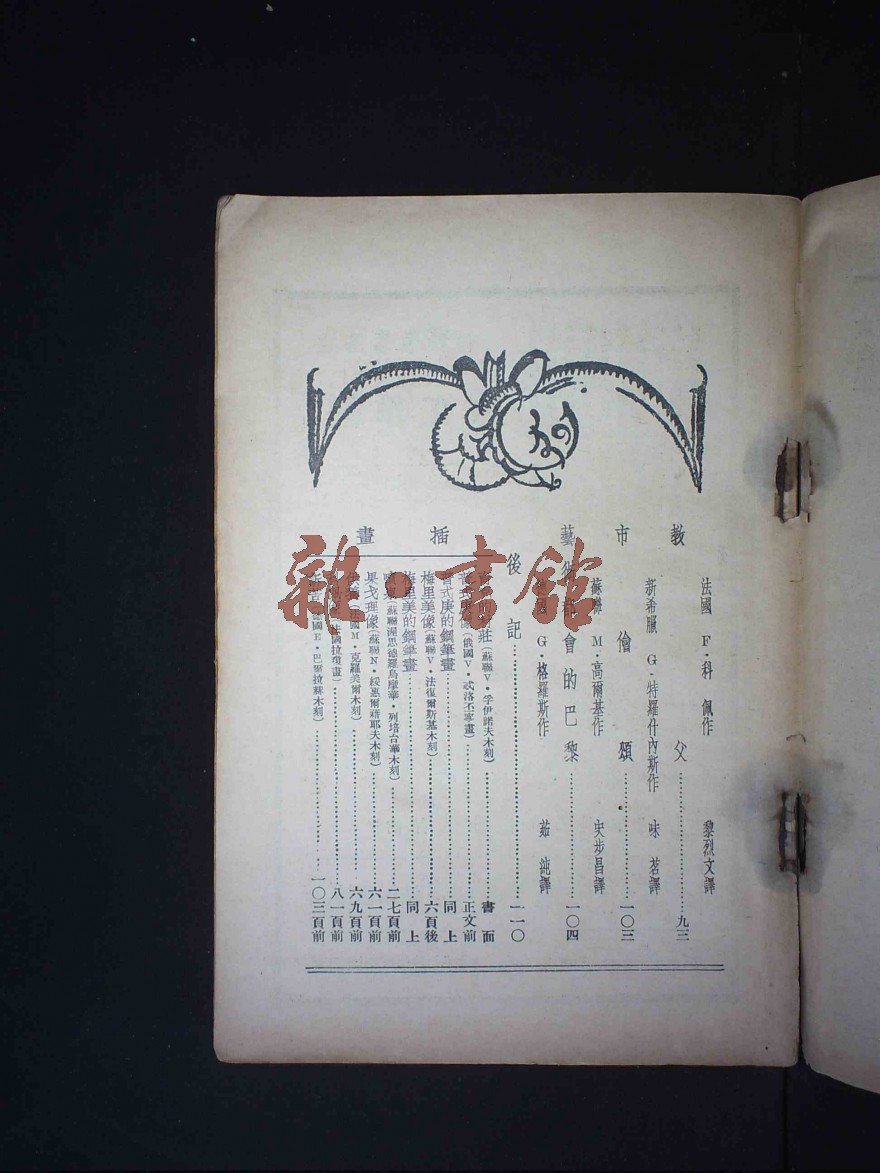 法國 F·科佩作 黎烈文譯
教父 九三
新希臘 G·特羅什內斯作 味茗譯
市儈頌 一〇三
蘇聯 M·高爾基作 史步昌譯
藝 會的巴黎 一〇四
G·格羅斯作 茹純譯
後記 一一〇
插畫
莊(蘇聯V·孚伊諾夫木刻) 書面
像(俄國V·武洛丕畫) 正文前
普式庚的鋼筆畫 同上
梅里美像(蘇聯V·法復爾斯基木刻) 六頁後
梅里美的鋼筆畫 同上
(蘇聯渥思德羅烏摩華·列培台華木刻) 二七頁前
果戈理像(蘇聯N·綏惠爾藉耶夫木刻) 六一頁前
(德國M·克羅美爾木刻) 六九頁前
法國拉瓊畫) 八一頁前
E·巴爾拉赫木刻) 一〇三頁前
雜書館